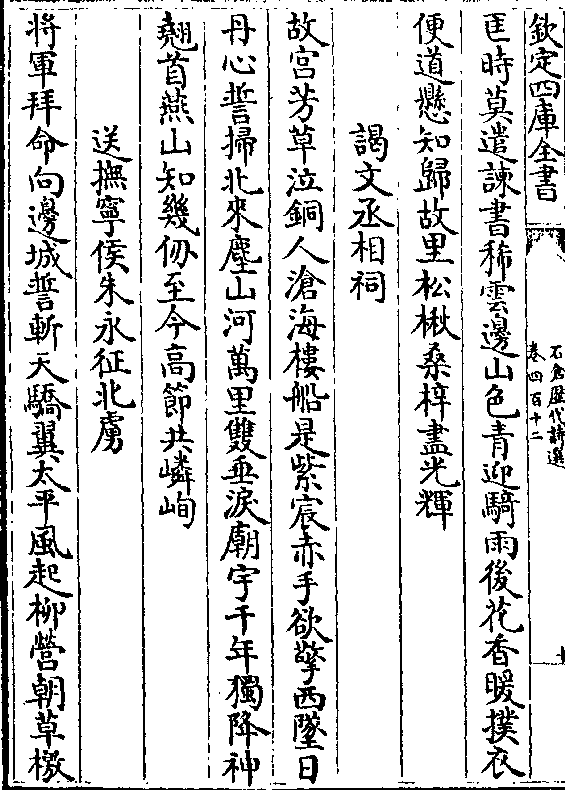 欽定四庫全書
石倉歷代詩選
卷四百十二
匡時莫遣諫書稀雲邊山色青迎騎雨後花香暖撲衣
便道懸知歸故里松楸桑梓盡光輝
謁文丞相祠
故宮芳草泣銅人滄海樓船是紫宸赤手欲擎西墜日
丹心誓掃北來塵山河萬里雙垂淚廟宇千年獨降神
翹首燕山知幾仞至今高節共嶙峋
送撫寧侯朱永征北虜
將軍拜命向邊城誓斬天驕翼太平風起柳營朝草檄